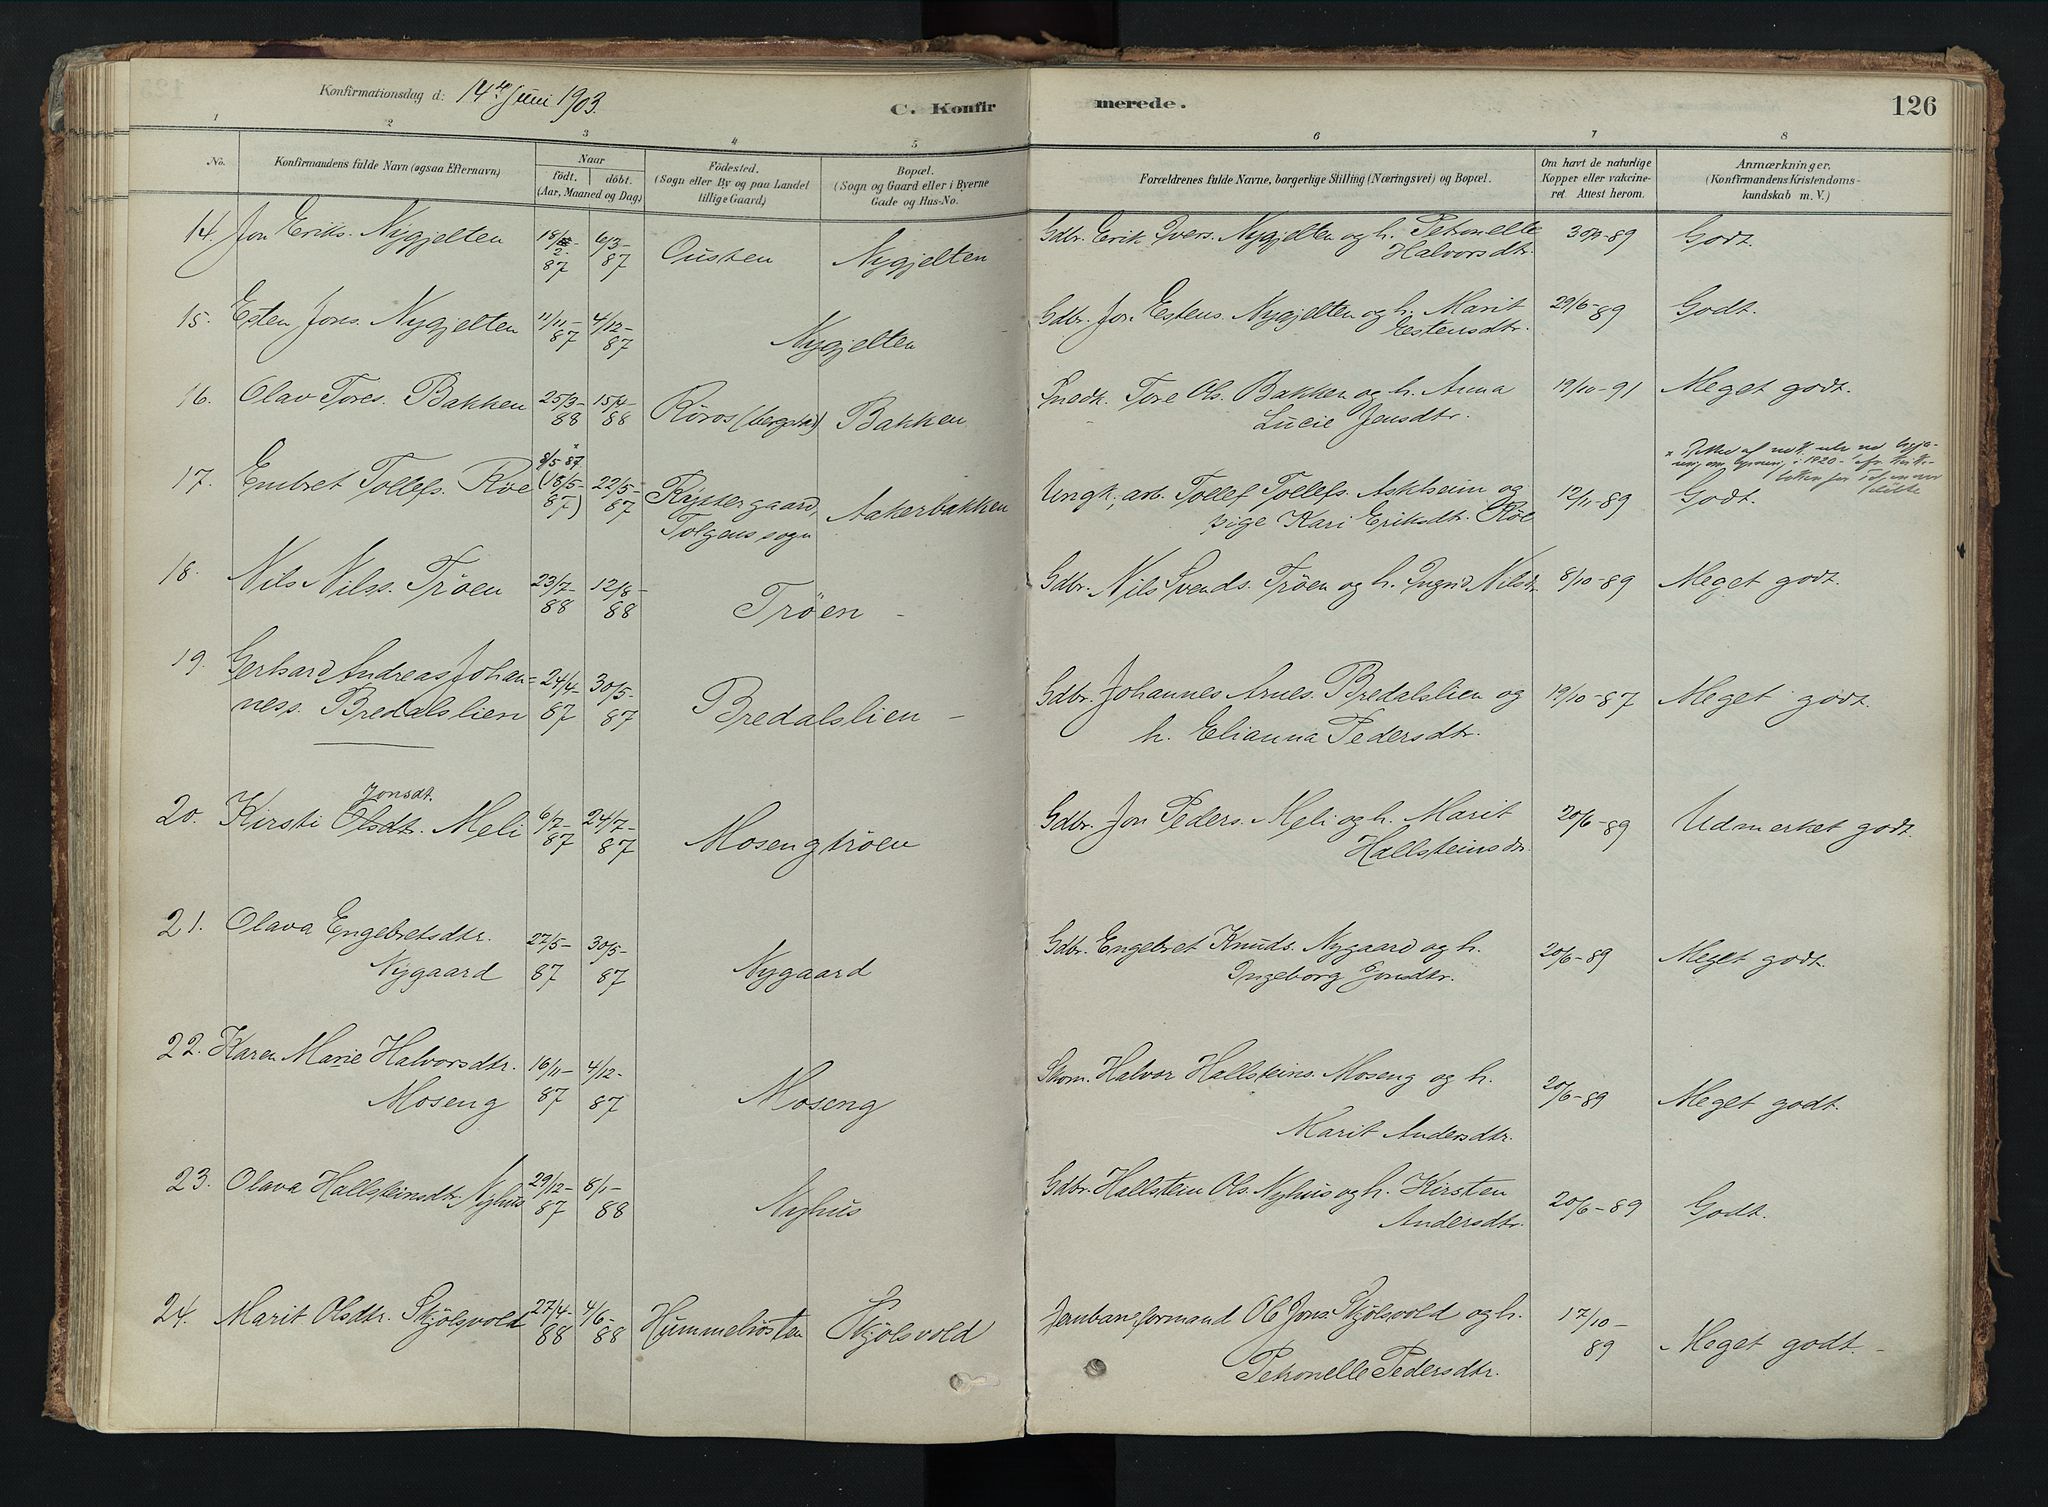 Konfirmationsdag d: 14de Juni 1903.
C. Konfirmerede.
126
1 2 3 4 5 6 7 8
No.
Konfirmandens fulde Navn (ogsaa Efternavn)
Naar
födt. döbt.
(Aar, Maaned og Dag)
Födested.
(Sogn eller By og paa Landet
tillige Gaard)
Bopæl.
(Sogn og Gaard eller i Byerne
Gade og Hus-No.
Forældrenes fulde Navne, borgerlige Stilling (Næringsvei) og Bopæl.
Om havt de naturlige
Kopper eller vakcine-
ret. Attest herom.
Anmærkninger.
(Konfirmandens Kristendoms-
kundskab m. V.)
14. Jon Eriks. Nygjelten 18/2-87 6/3-87 Ousten Nygjelten Gdbr. Erik Ivers. Nygjelten og h. Petronelle
Halvorsdtr. -89 Godt.
15. Esten Jons. Nygjelten 11/11-87 4/12-87 Nygjelten - Gdbr. Jon Estens. Nygjelten og h. Marit
Estensdtr. 29/6-89 Godt.
16. Olav Tores. Bakken 25/3-88 15/4-88 Röros (bergstad) Bakken Snedk. Tore Ols. Bakken og h. Anna
Lucie Jensdtr. 19/10-91 Meget godt.
17. Embret Tollefs. Röe 8/5 87 (18/5-87) 22/5-87 Ryttergaard,
Tolgens sogn Aakerbakken Ungk., arb. Tollef Tollefs. Askheim og
pige Kari Eriksdtr. Röe 12/11-89 Godt.
18. Nils Nilss. Tröen 23/7-88 12/8-88 Tröen - Gdbr. Nils Svends. Tröen og h. Ingrid Nilsdtr. 8/10-89 Meget godt.
19. Gerhard Andreas Johan=
ness. Bredalslien 24/4-87 30/5-87 Bredalslien - Gdbr. Johannes Arnes. Bredalslien og
h. Elianna Pedersdtr. 19/10-87 Meget godt.
Jonsdt.
20. Kirsti Olsdtr. Meli 6/7-87 24/7-87 Mosengtröen Gdbr. Jon Peders. Meli og h. Marit
Hallsteinsdr. 20/6-89 Udmerket godt.
21. Olava Engebretsdtr.
Nygaard 27/5-87 30/5-87 Nygaard Gdbr. Engebret Knuds. Nygaard og h.
Ingeborg Jonsdtr. 20/6-89 Meget godt.
22. Karen Marie Halvorsdtr.
Moseng 16/11-87 4/12-87 Moseng Skom. Halvor Hallsteins. Moseng og h.
Marit Andersdtr. 20/6-89 Meget godt.
23. Olava Hallsteinsdtr. Nyhus 29/12-87 8/1-88 Nyhus Gdbr. Hallstein Ols. Nyhus og h. Kirsten
Andersdtr. 20/6-89 Godt.
24. Marit Olsdtr. Skjölsvold 27/4-88 4/6-88 Hummelvosten Skjölsvold Jernbaneformand Ol. Jons. Skjölsvold og h.
Petronelle Pedersdtr. 17/10-89 Meget godt. -